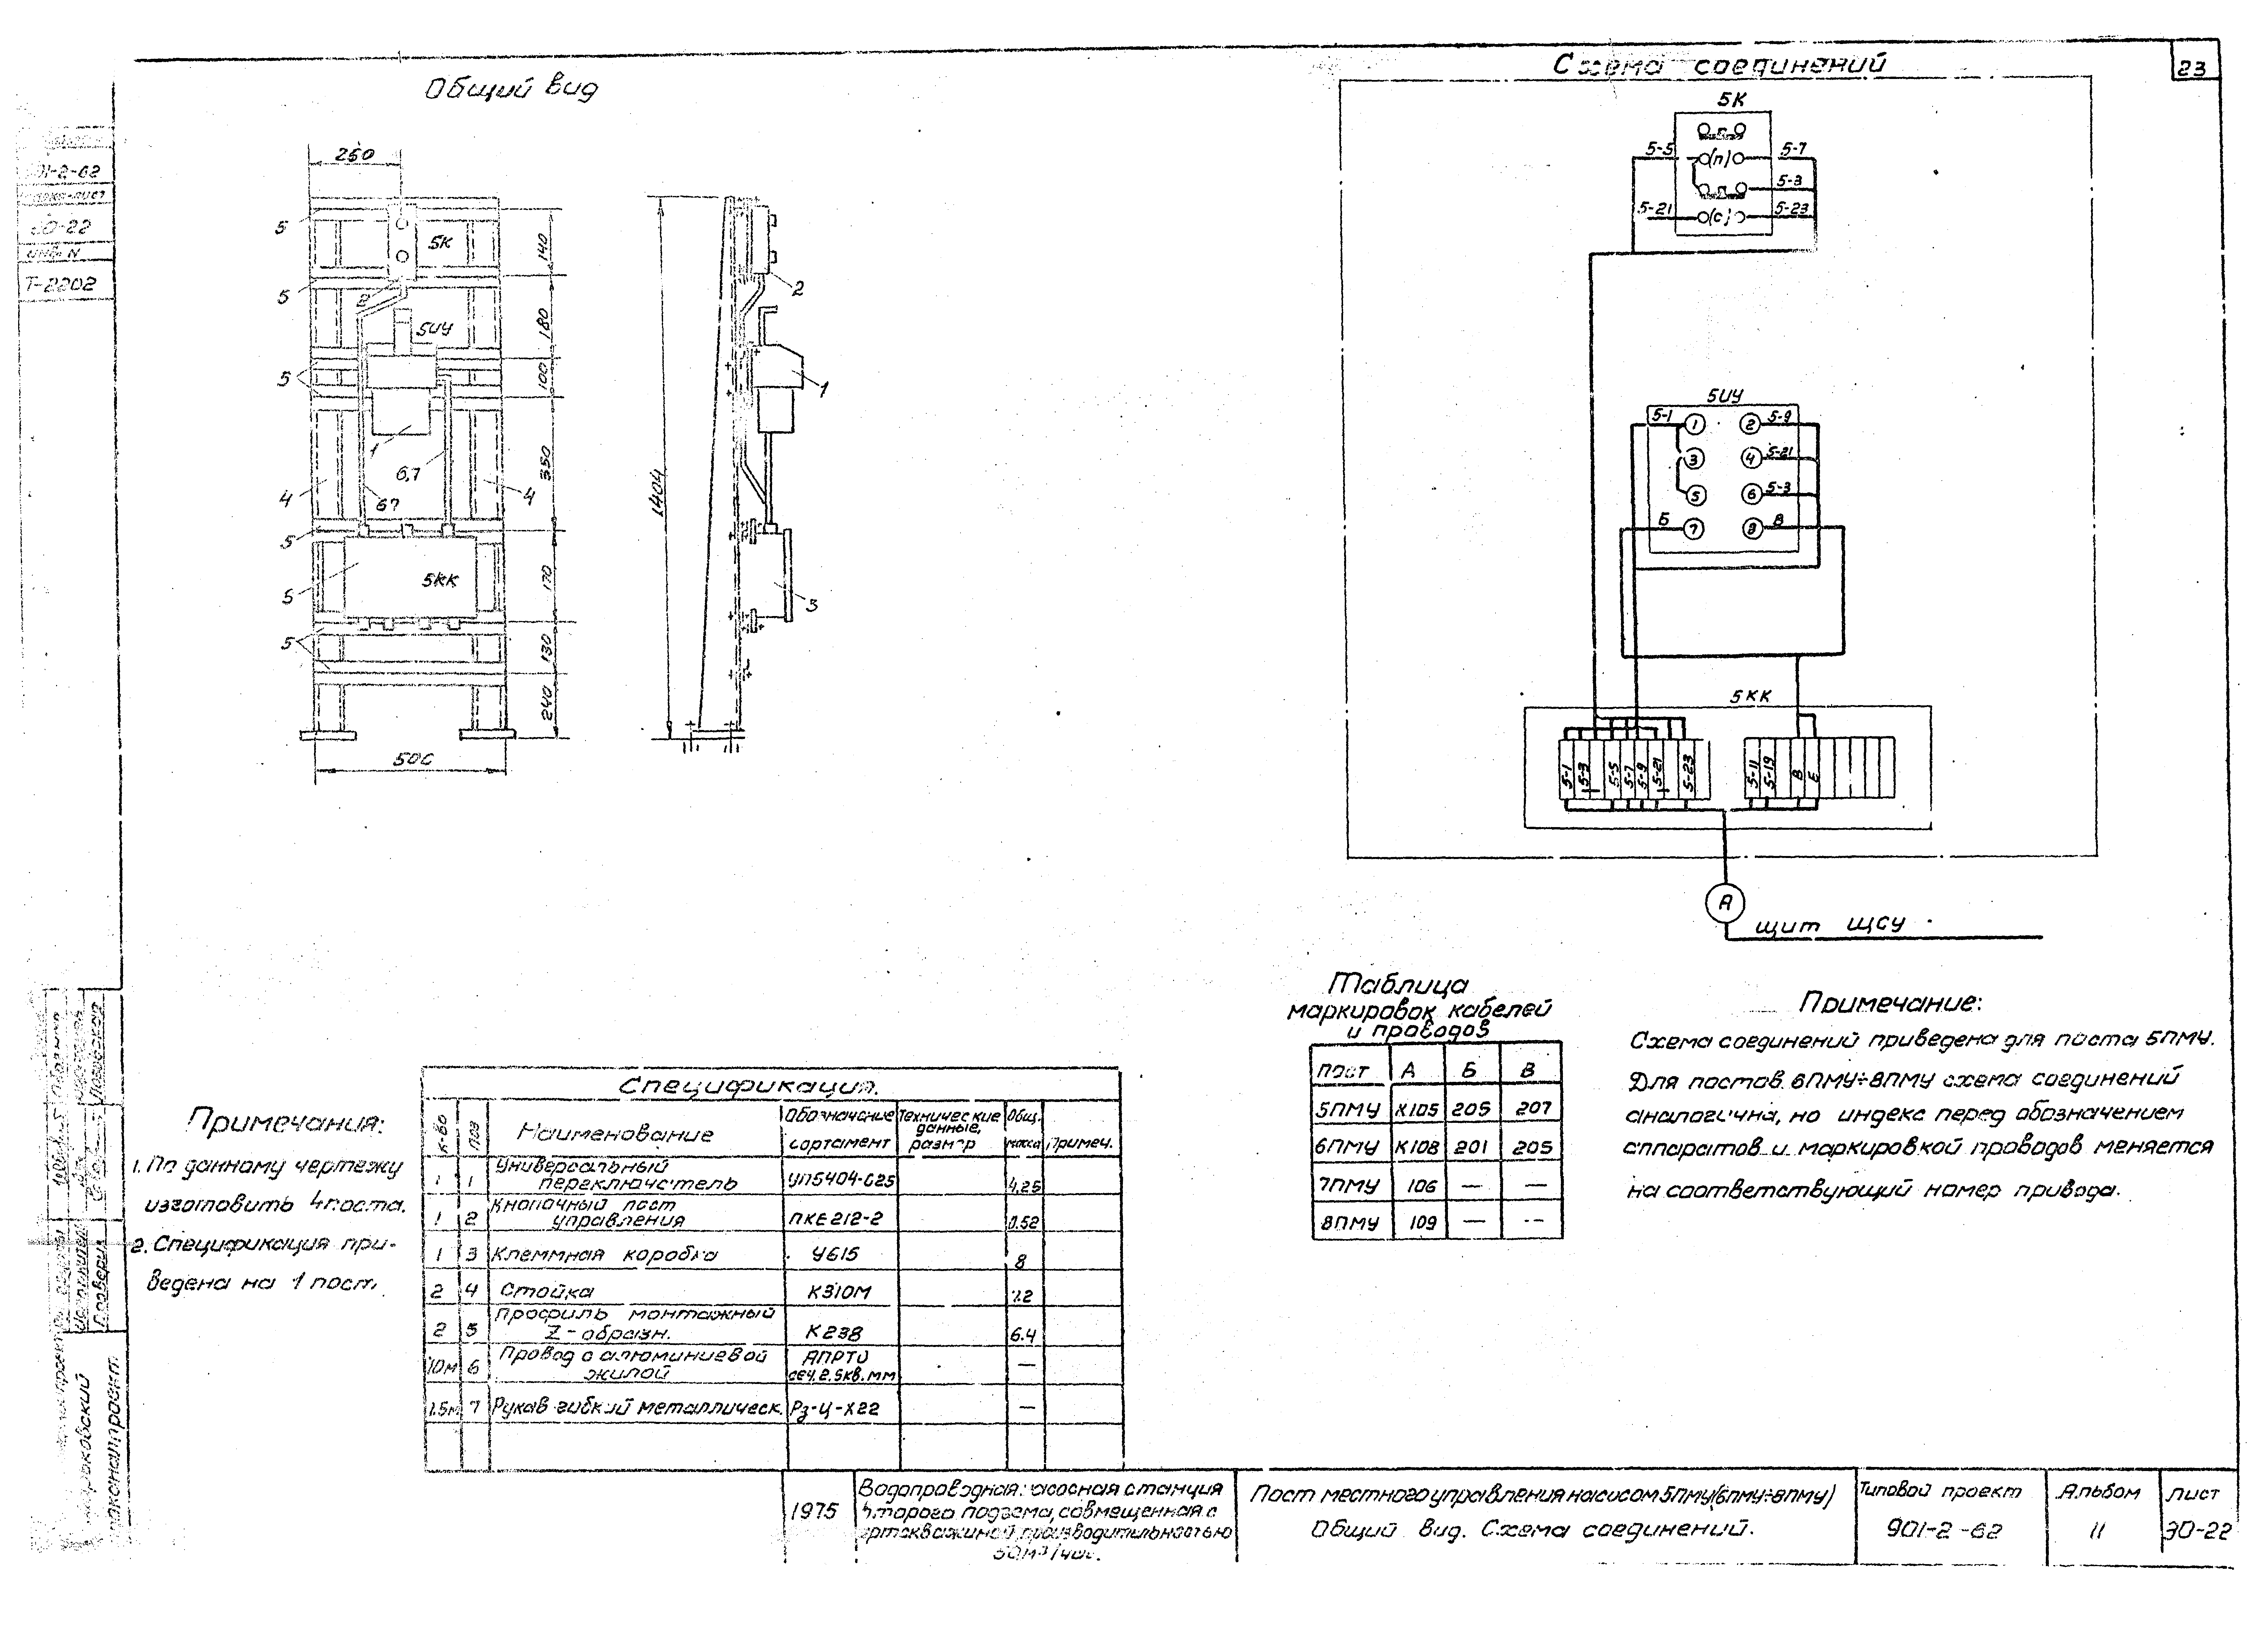 23
Общий вид
250
5
5К
140
5
2
180
5ИУ
5
100
1
6,7
350
4
67
4
5
5КК
5
170
5
130
240
500
1404
2
1
3
Схема соединений
5К
5-5
(п)
5-7
5-3
5-21
(с)
5-23
5ИУ
5-1
1
2
5-9
3
4
5-21
5
6
5-3
Б
7
8
В
5КК
5-1
5-3
5-5
5-7
5-9
5-21
5-23
5-11
5-19
В
А
щит ЩСУ
Таблица
маркировок кабелей
и проводов
Пост А Б В
5ПМУ К105 205 207
6ПМУ К108 201 205
7ПМУ 106 — —
8ПМУ 109 — --
Примечание:
Схема соединений приведена для поста 5ПМУ.
Для постов 6ПМУ÷8ПМУ схема соединений
аналогична, но индекс перед обозначением
аппаратов и маркировкой проводов меняется
на соответствующий номер привода.
Примечания:
1. По данному чертежу
изготовить 4 поста.
2. Спецификация при-
ведена на 1 пост.
Спецификация.
К-во Поз Наименование Обозначение сортамент Технические данные, разм-р Общ. масса Примеч.
1 1 Универсальный переключатель УП5404-С25 4,25
1 2 Кнопочный пост управления ПКЕ212-2 0.52
1 3 Клеммная коробка У615 8
2 4 Стойка К310М
2 5 Профиль монтажный Z-образн. К238 6.4
10м 6 Провод с алюминиевой жилой АПРТО сеч. 2.5кв.мм —
7 Рукав гибкий металлическ. Рз-Ц-Х22 —
1975
Водопроводная насосная станция
второго подъема, совмещенная с
артскважиной, производительностью
50м³/час.
Пост местного управления насосом 5ПМУ(6ПМУ÷8ПМУ)
Общий вид. Схема соединений.
Типовой проект
901-2-62
Альбом
II
Лист
ЭО-22
инв. N
Т-2202
Проверил